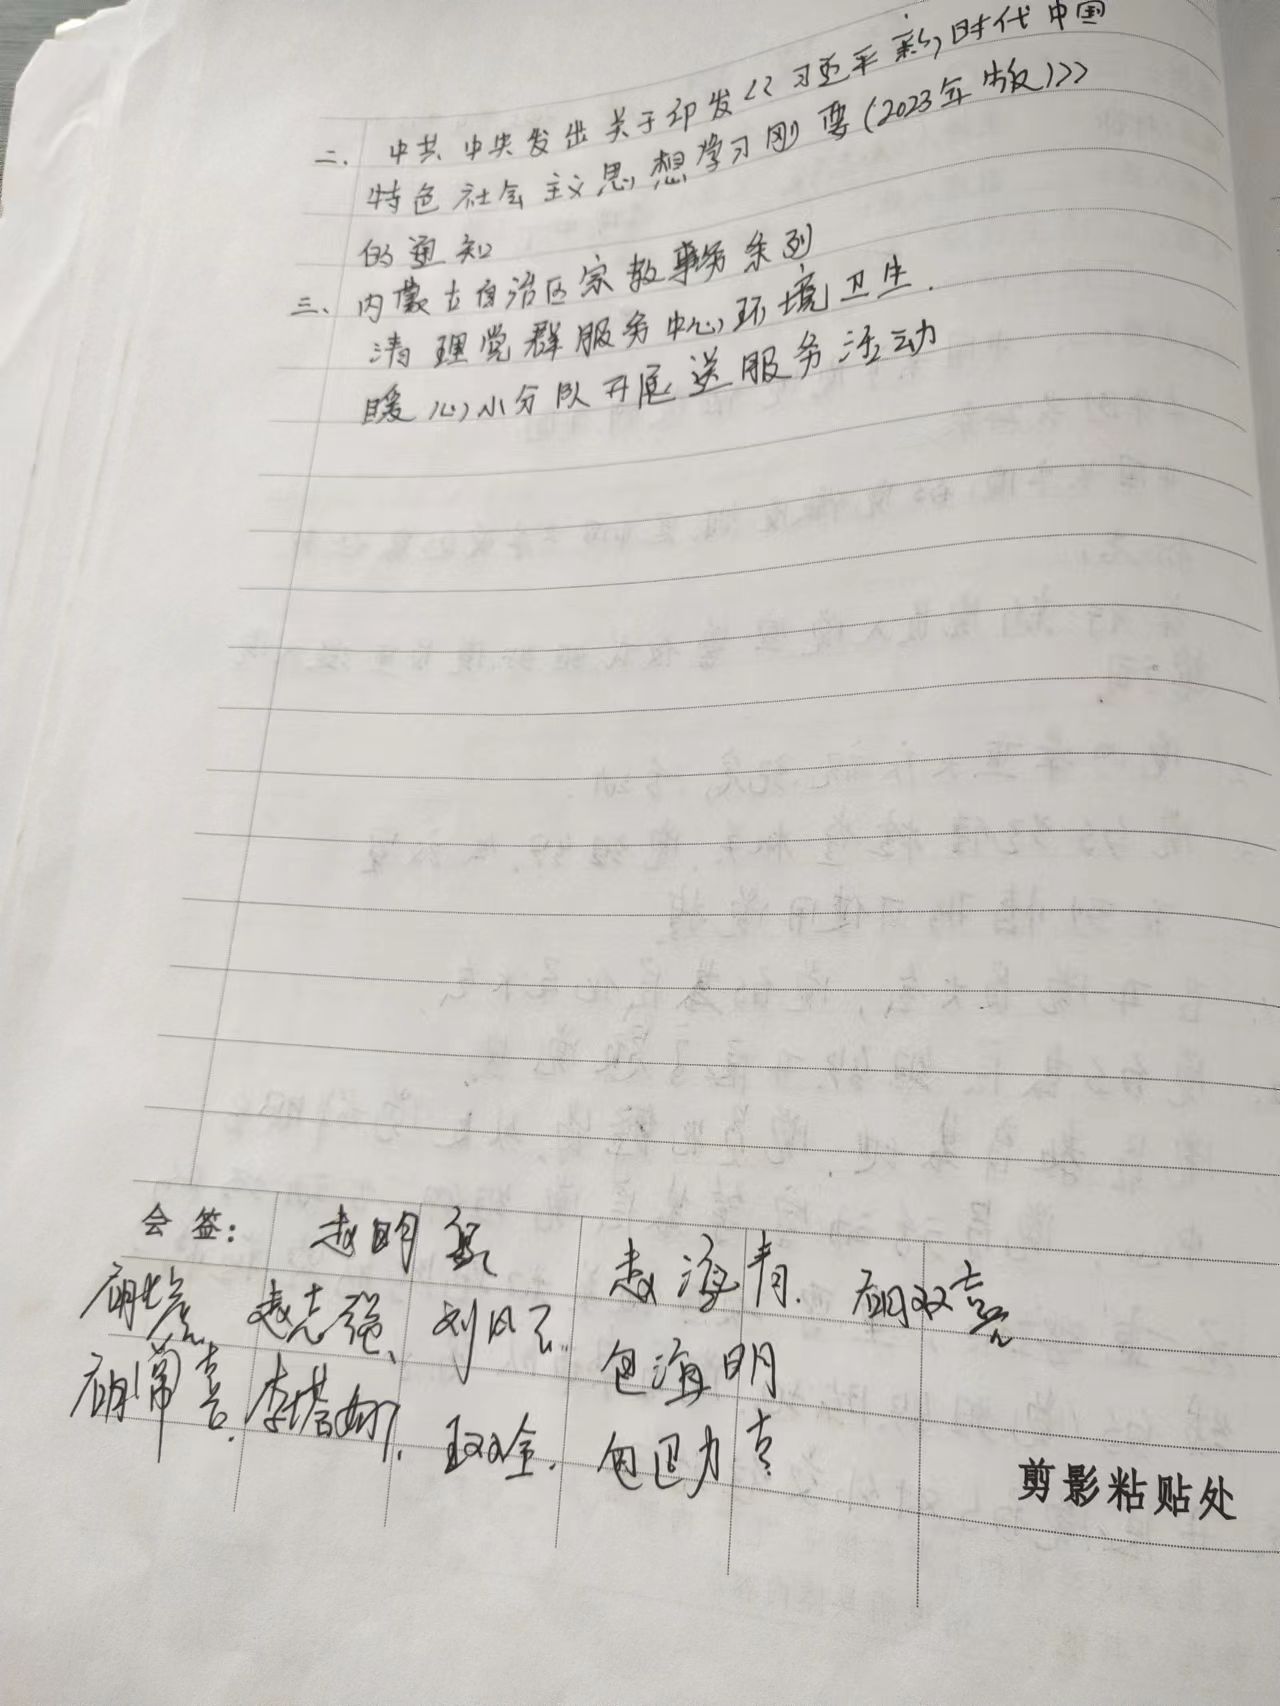 二、中共中央发出关于印发《习近平新时代中国
特色社会主义思想学习刚要(2023年版)》
的通知
三、内蒙古自治区宗教事务条列
清理党群服务中心环境卫生.
暖心小分队开展送服务活动
会签: 赵明 赵海青.
赵志强、刘风云.. 包海明
李塔娜. 双全. 包巴力吉
剪影粘贴处